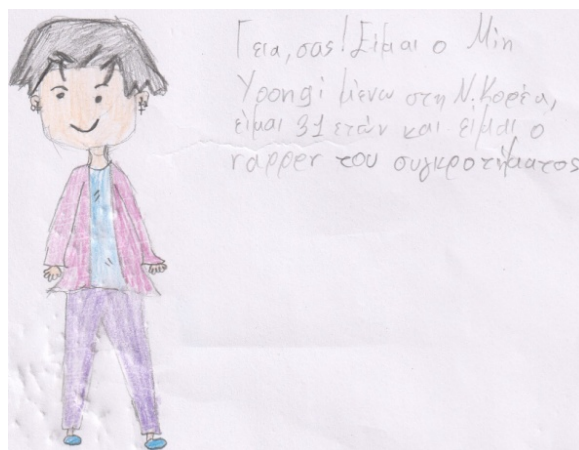 Γεια, σας! Είμαι ο Min
Yoongi μένω στη Ν. Κορέα,
είμαι 31 ετών και είμαι ο
rapper του συγκροτήματος